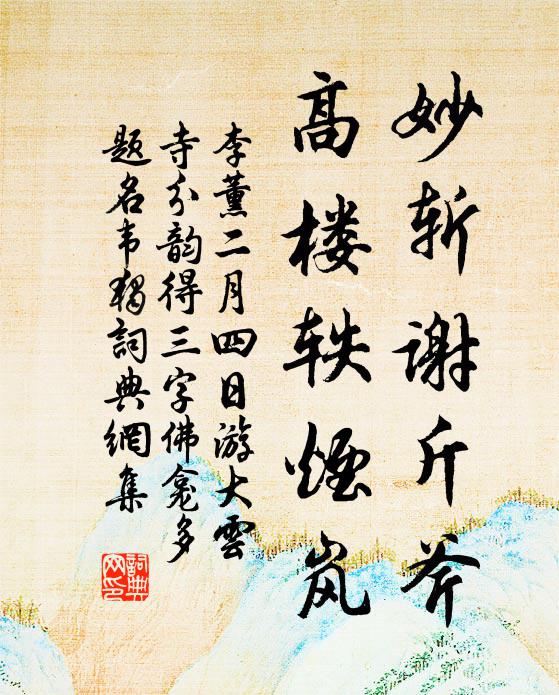 妙斩谢斤斧
高楼轶烟岚
李薰二月四日游大雲
寺分韵得三字佛龛多
题名韦獨詞典網集
詞典
网印